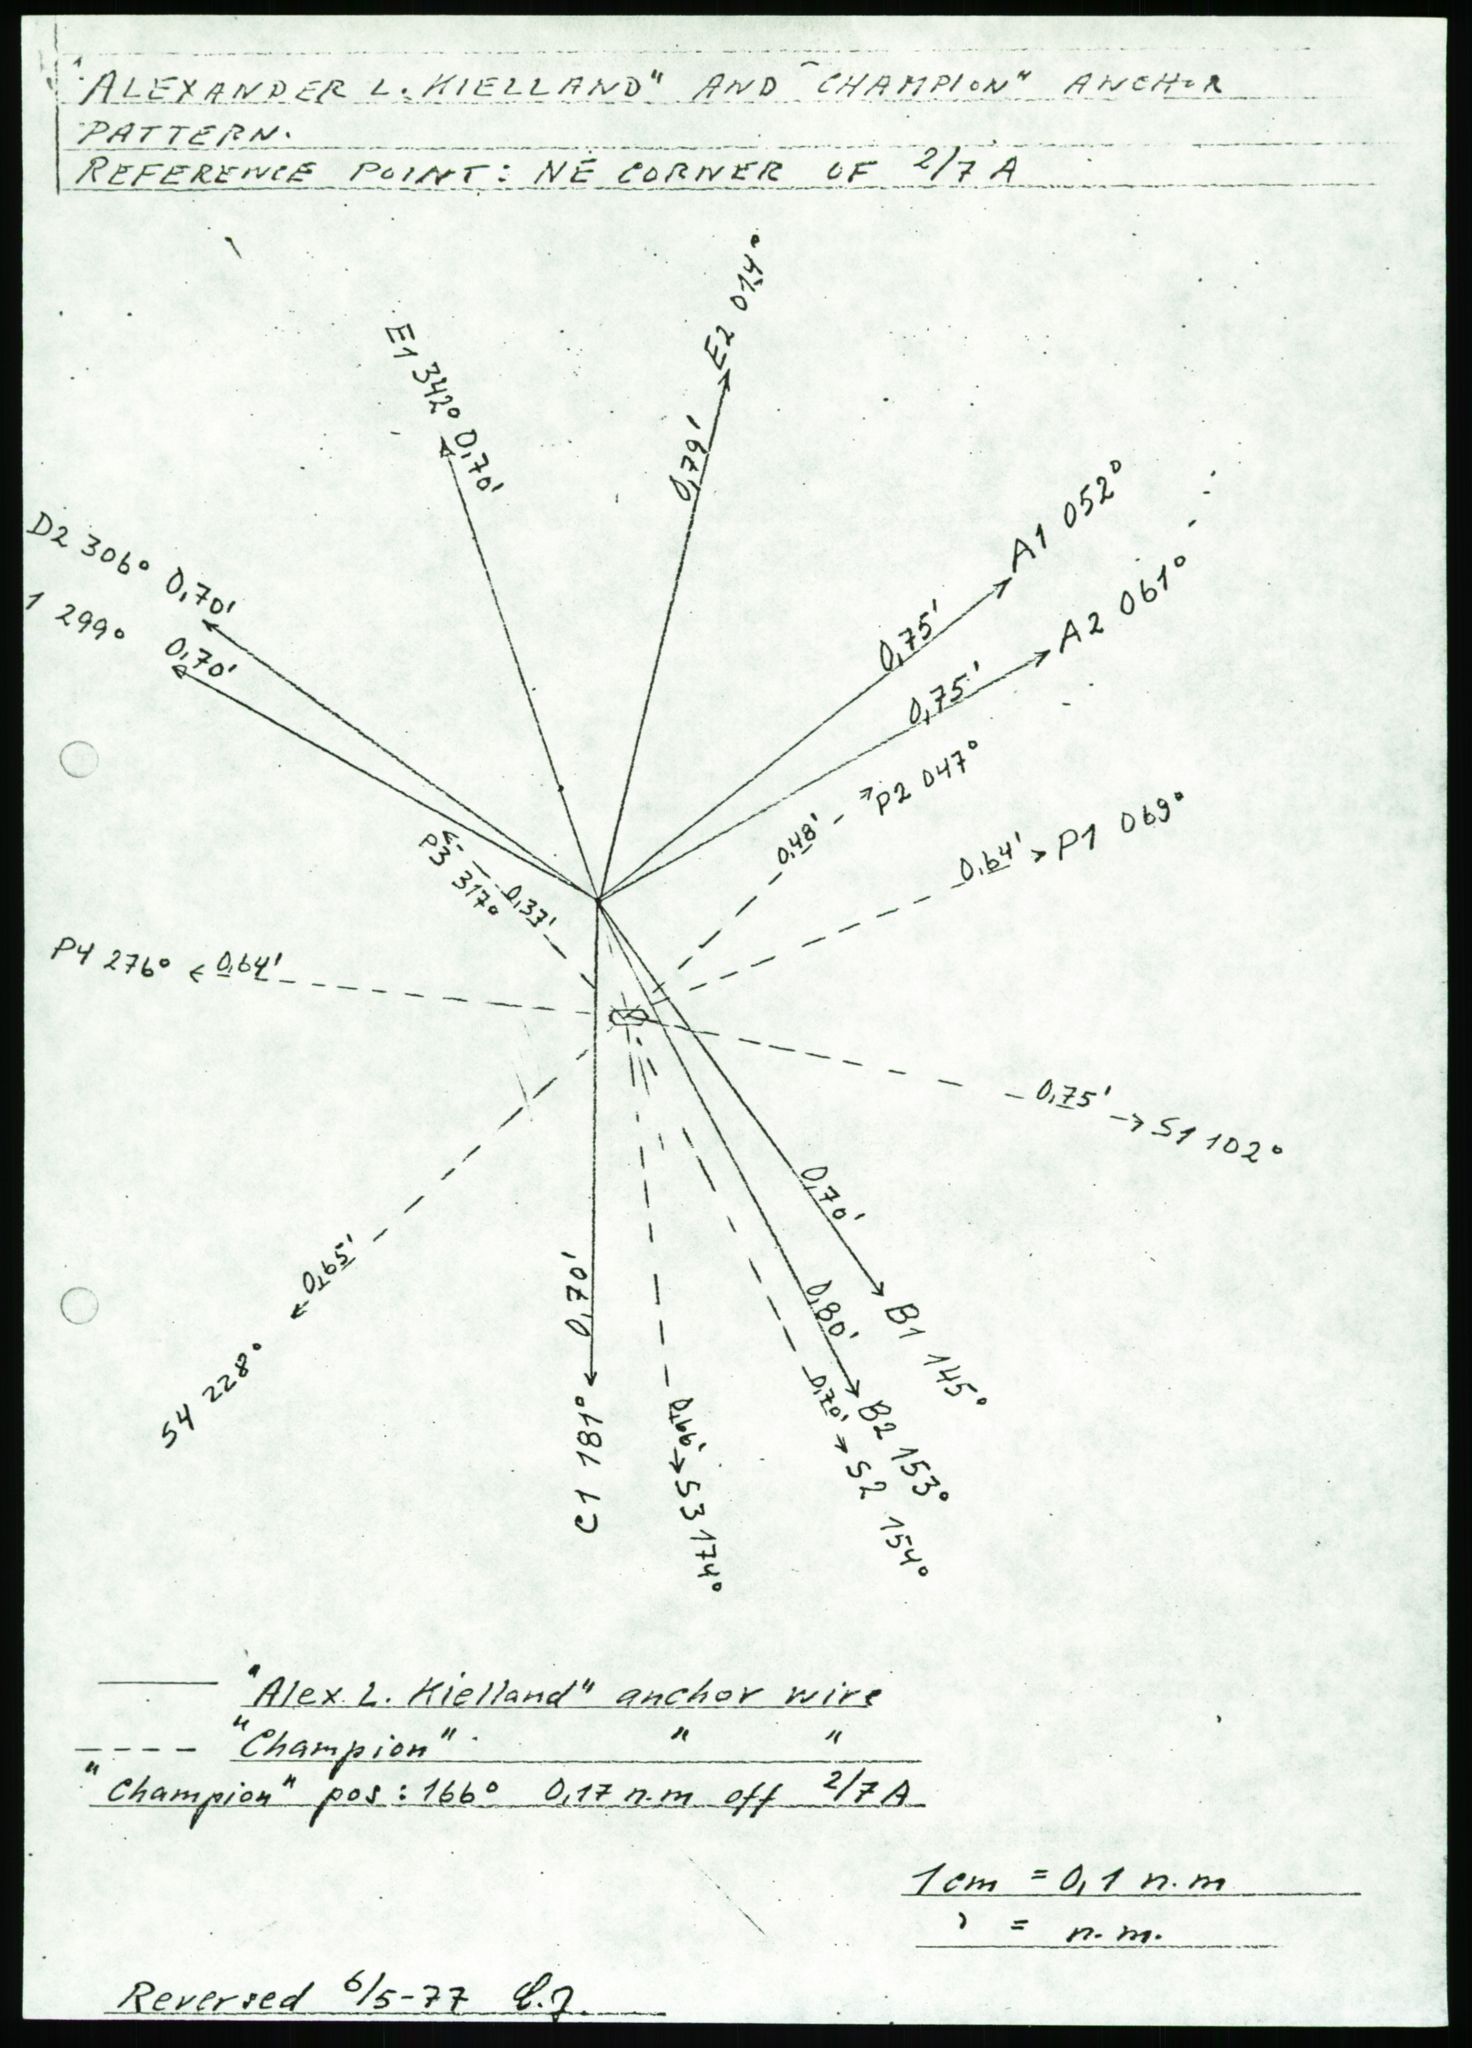 "ALEXANDER L. KIELLAND" AND "CHAMPION" ANCHOR
PATTERN.
REFERENCE POINT: NE CORNER OF 2/7 A
E2 014°
0,79'
E1 342° 0,70'
A1 052°
0,75'
D2 306° 0,70'
A2 061°
0,75'
1 299° 0,70'
P2 047°
0,48'
P1 069°
0,64'
P3 317°
0,37'
P4 276° 0,64'
0,75' S1 102°
0,70'
B1 145°
0,65'
S4 228°
0,70'
C1 181°
0,80'
B2 153°
0,66'
S3 174°
0,70'
S2 154°
"Alex. L. Kielland" anchor wire
"Champion" " "
"Champion" pos: 166° 0,17 n.m off 2/7 A
1 cm = 0,1 n.m
' = n.m.
Reversed 6/5-77